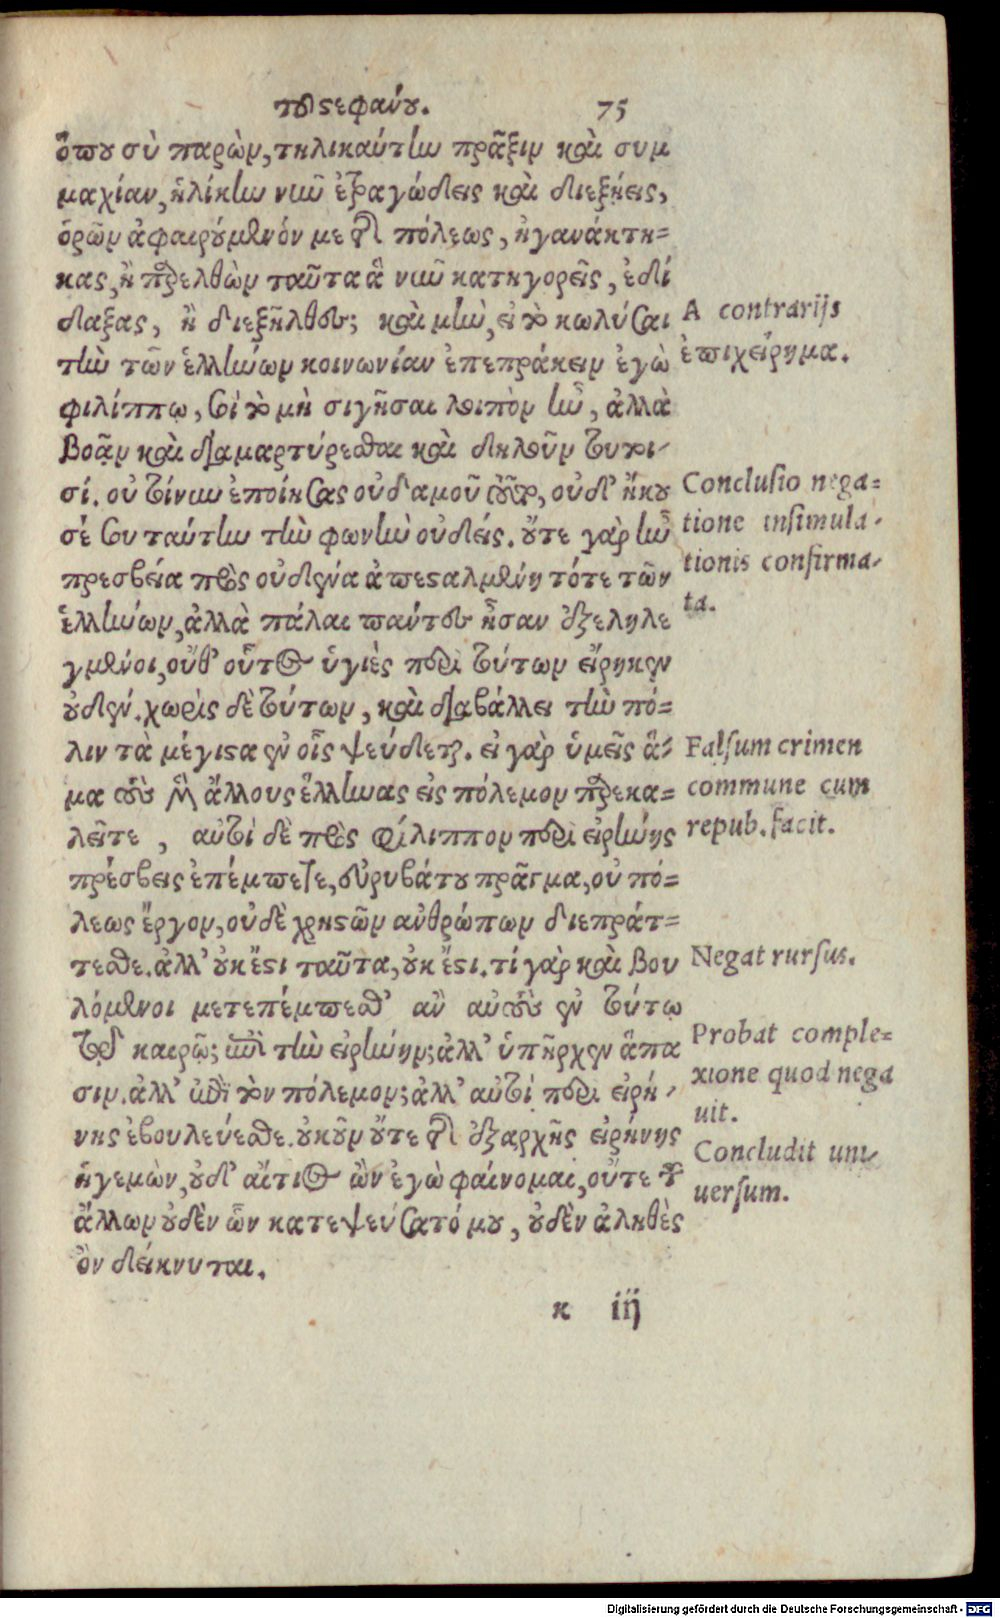 τοῦ στεφάνου. 75
ὅπου σὺ παρὼν, τηλικαύτην πρᾶξιν καὶ συμ
μαχίαν, ἡλίκην νυνὶ ἐτραγῴδεις καὶ διεξῄεις,
ὁρῶν ἀφαιρούμενόν με τῆς πόλεως, ἠγανάκτη=
κας, ἢ παρελθὼν ταῦτα ἃ νυνὶ κατηγορεῖς, ἐδί
δαξας, ἢ διεξῆλθες; καὶ μὴν, εἰ τὸ κωλύσαι
τὴν τῶν ἑλλήνων κοινωνίαν ἐπεπράκειν ἐγὼ
φιλίππῳ, σοὶ τὸ μὴ σιγῆσαι λοιπὸν ἦν, ἀλλὰ
βοᾷν καὶ διαμαρτύρεσθαι καὶ δηλοῦν τουτοι-
σί. οὐ τοίνυν ἐποίησας οὐδαμοῦ τοῦτο, οὐδ' ἤκου
σέ σου ταύτην τὴν φωνὴν οὐδείς. οὔτε γὰρ ἦν
πρεσβεία πρὸς οὐδένα ἀπεσταλμένη τότε τῶν
ἑλλήνων, ἀλλὰ πάλαι πάντες ἦσαν ἐξεληλε
γμένοι, οὔθ' οὗτος ὑγιὲς περὶ τούτων εἴρηκεν
οὐδέν. χωρὶς δὲ τούτων, καὶ διαβάλλει τὴν πό=
λιν τὰ μέγιστα ἐν οἷς ψεύδεται. εἰ γὰρ ὑμεῖς ἅ=
μα τοὺς μὲν ἄλλους ἕλληνας εἰς πόλεμον παρεκα=
λεῖτε, αὐτοὶ δὲ πρὸς φίλιππον περὶ εἰρήνης
πρέσβεις ἐπέμπετε, εὐρυβάτου πρᾶγμα, οὐ πό=
λεως ἔργον, οὐδὲ χρηστῶν ἀνθρώπων διεπράτ=
τεσθε. ἀλλ' οὐκ ἔστι ταῦτα, οὐκ ἔστι. τί γὰρ καὶ βου
λόμενοι μετεπέμπεσθ' ἂν αὐτοὺς ἐν τούτῳ
τῷ καιρῷ; ἐπὶ τὴν εἰρήνην; ἀλλ' ὑπῆρχεν ἅπα
σιν. ἀλλ' ἐπὶ τὸν πόλεμον; ἀλλ' αὐτοὶ περὶ εἰρή-
νης ἐβουλεύεσθε. οὐκοῦν οὔτε τῆς ἐξαρχῆς εἰρήνης
ἡγεμὼν, οὐδ' αἴτιος ὢν ἐγὼ φαίνομαι, οὔτε τῶν
ἄλλων οὐδὲν ὧν κατεψεύσατό μου, οὐδὲν ἀληθὲς
ὂν δείκνυται.
κ iij
A contrarijs
ἐπιχείρημα.
Conclusio nega=
tione insimula-
tionis confirma-
ta.
Falsum crimen
commune cum
repub. facit.
Negat rursus.
Probat comple=
xione quod nega
uit.
Concludit uni-
uersum.
Digitalisierung gefördert durch die Deutsche Forschungsgemeinschaft - DFG